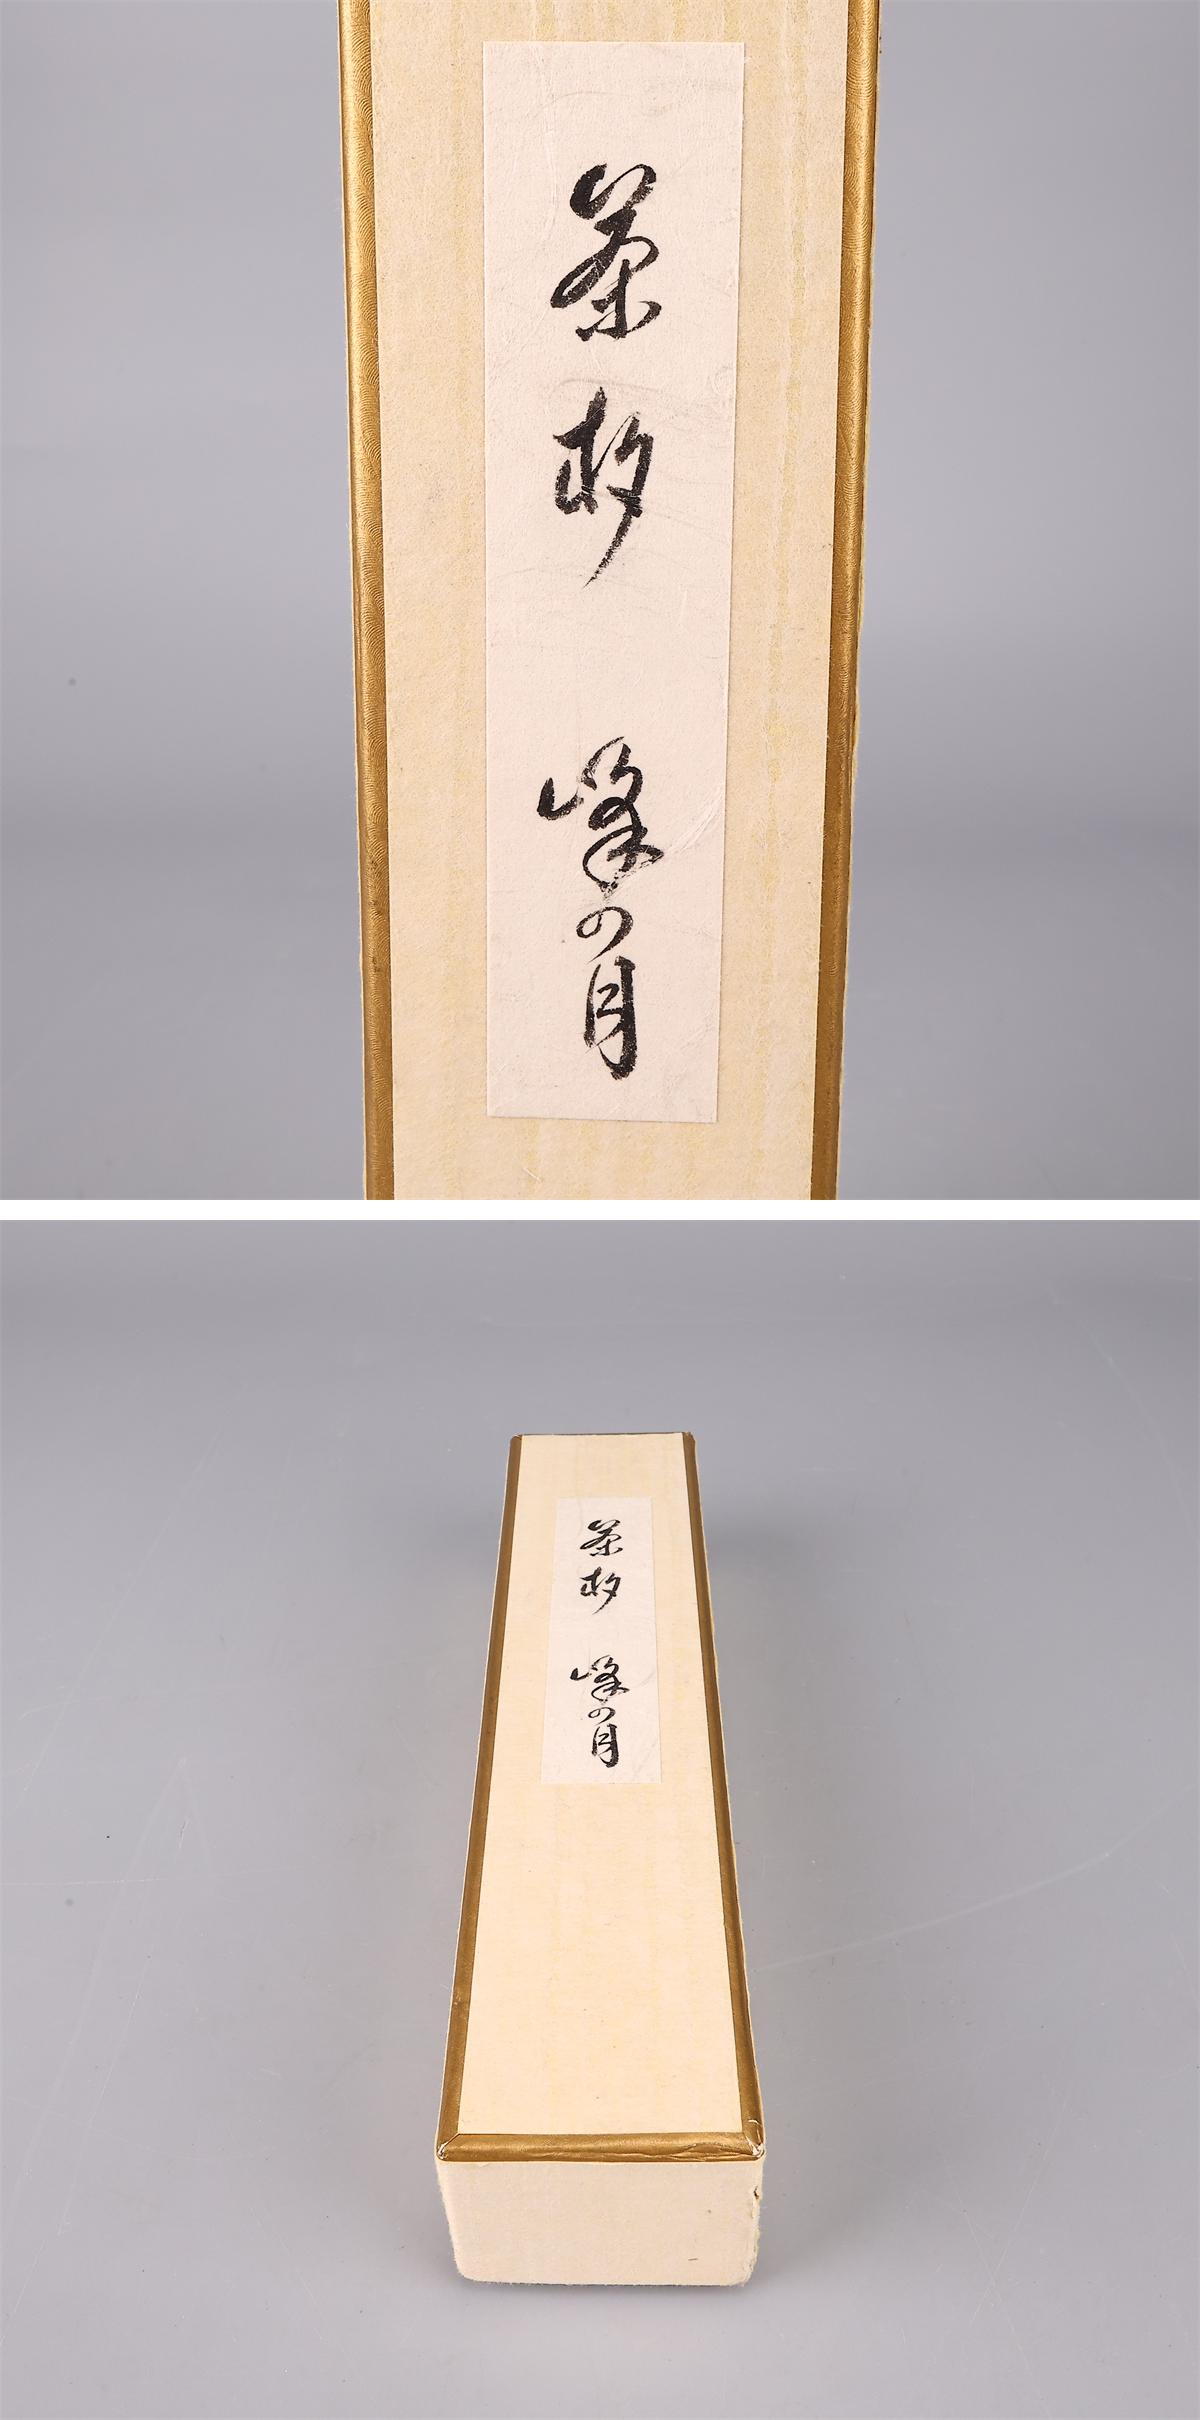 茶杓 峰の月
茶杓 峰の月